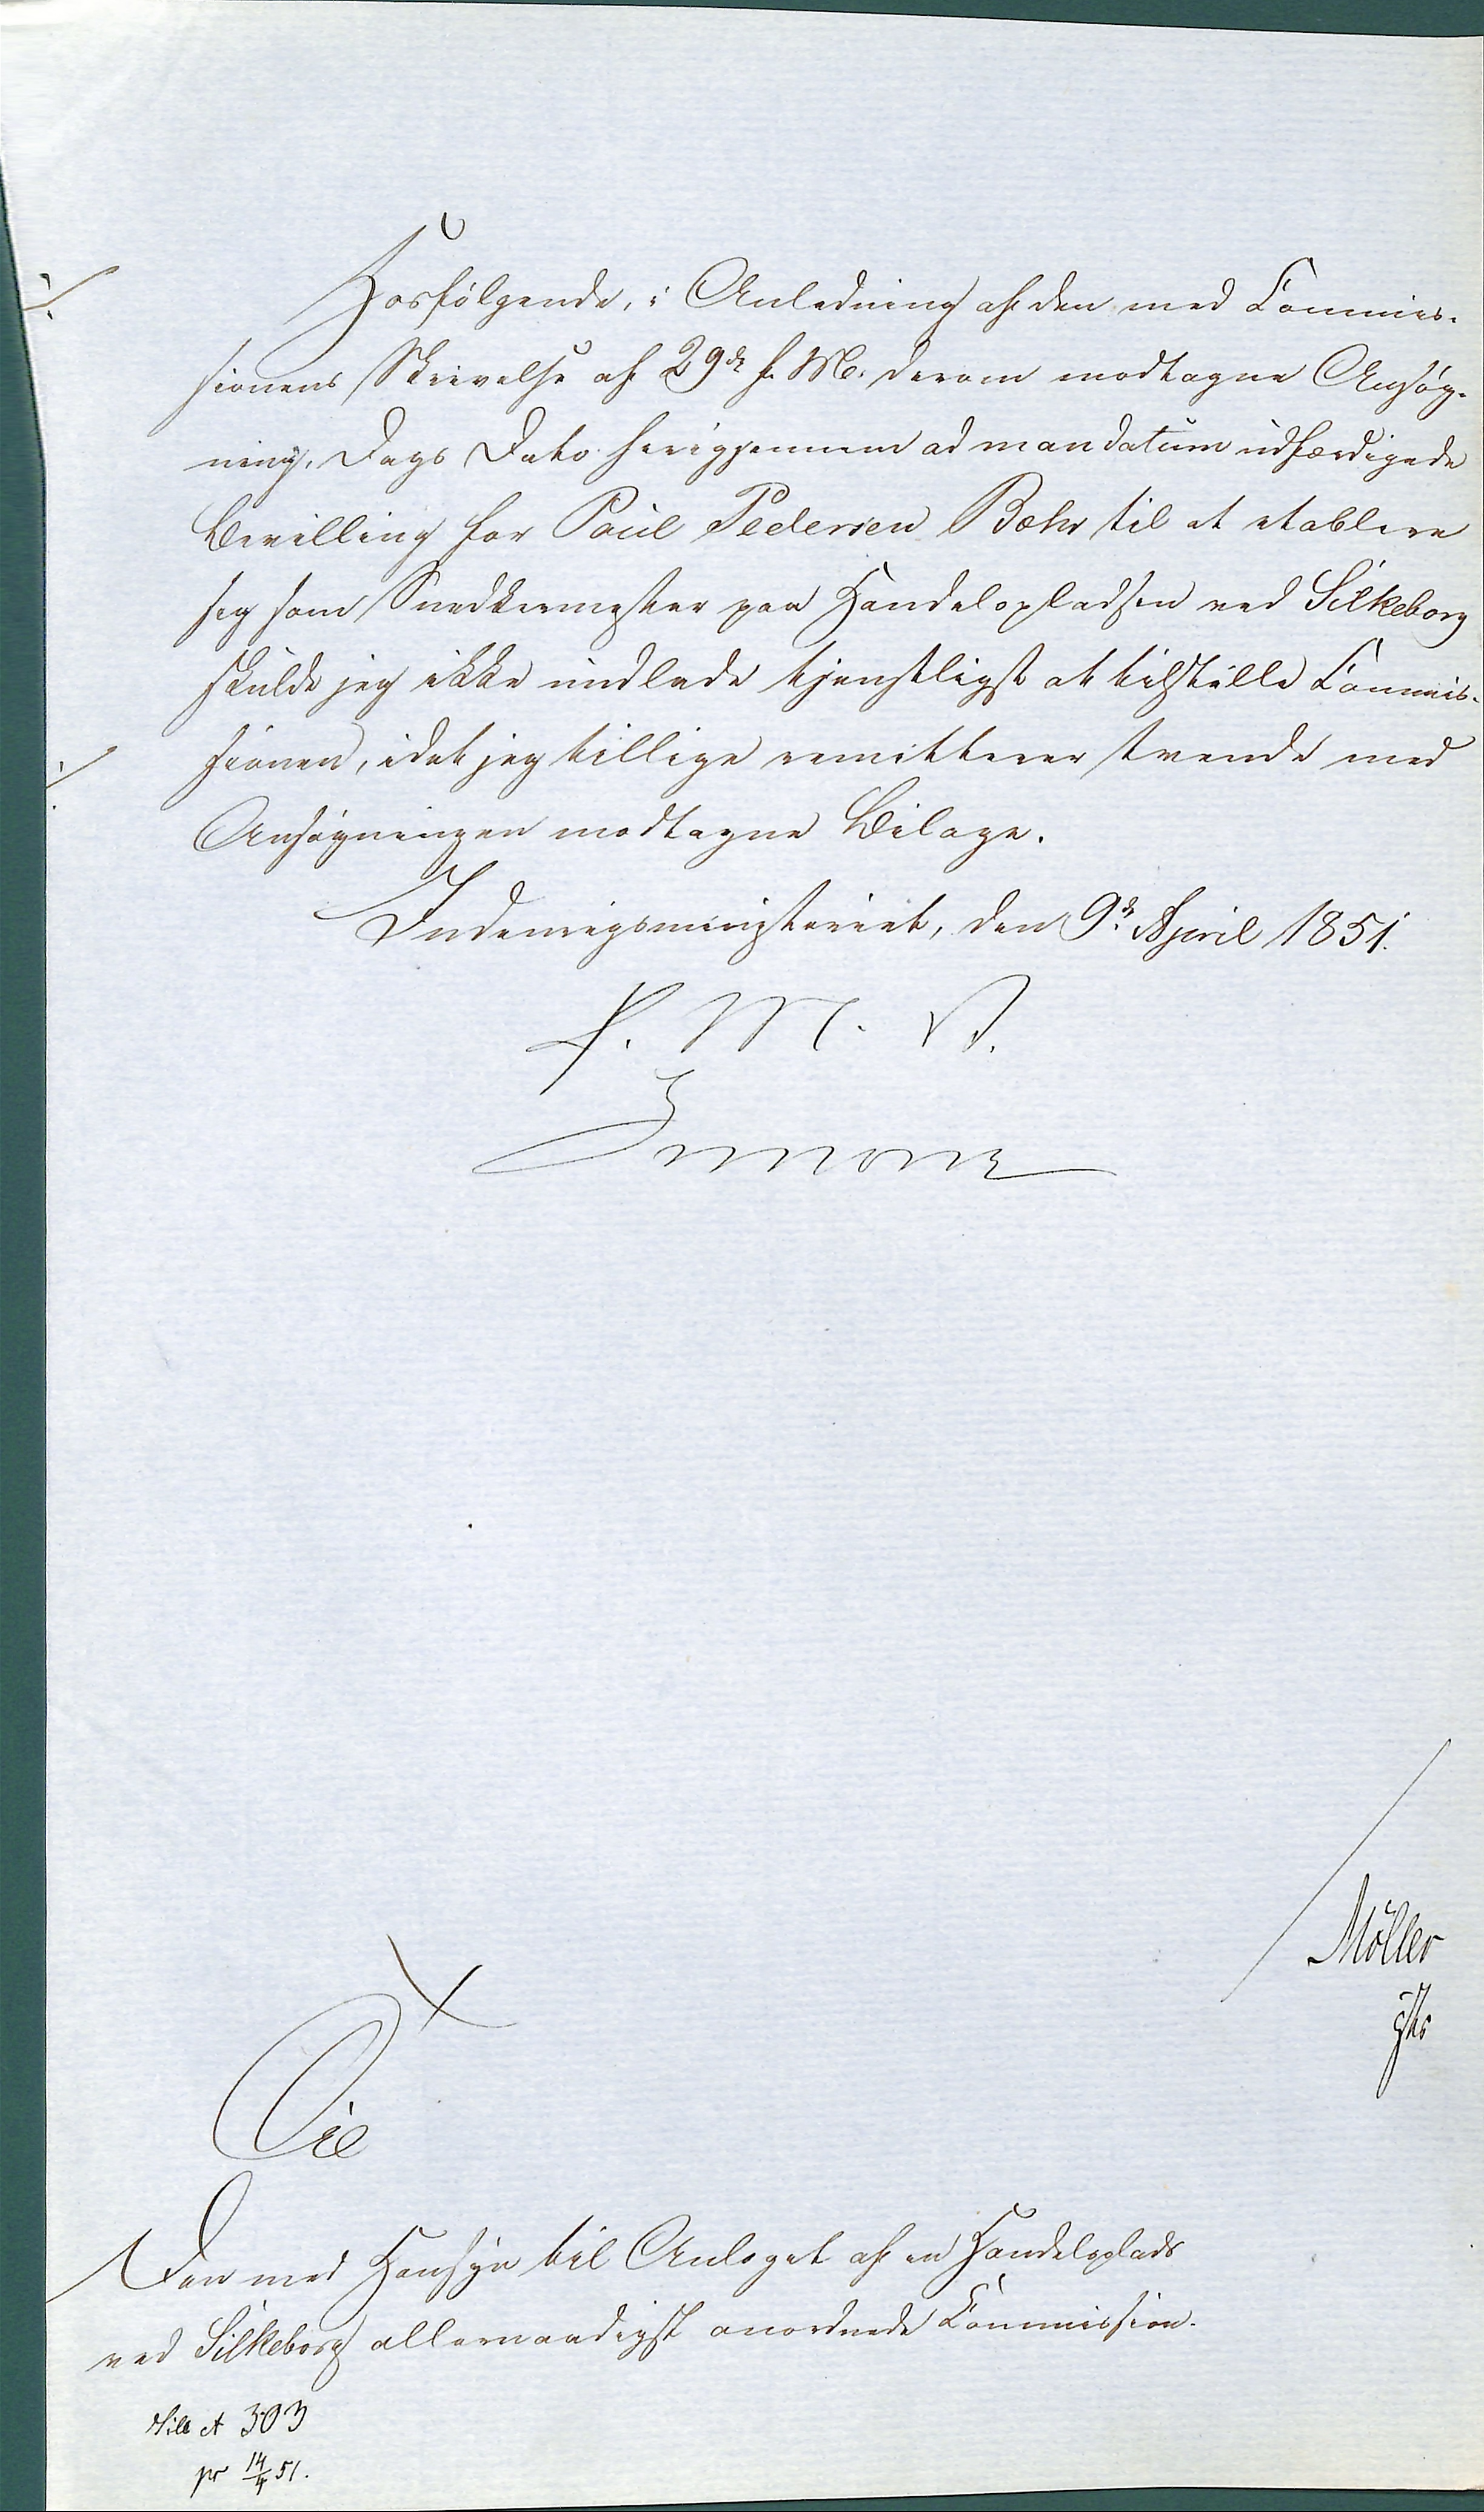 Hosfølgende, i Anledning af den med Commis-
sionens Skrivelse af 29de f. M. derom modtagne Ansøg-
ning, Dags Dato herigjennem ad mandatum udfærdigede
Bevilling for Poul Pedersen Bæhr til at etablere
sig som Snedkermester paa Handelspladsen ved Silkeborg
skulde jeg ikke undlade tjenstligst at tilstille Commis-
sionen, idet jeg tillige remitterer tvende med
Ansøgningen modtagne Bilage.
Indenrigsministeriet, den 9de April 1851.
F. M. D.
Simony
Möller
Til
Den med Hensyn til Anlæget af en Handelsplads
ved Silkeborg allernaadigst anordnede Commission.
A 303
pr 14/4 51.